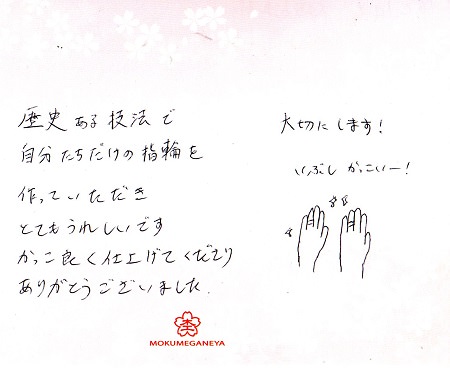 歴史ある技法で
自分たちだけの指輪を
作っていただき
とてもうれしいです
かっこ良く仕上げてくださり
ありがとうございました.
大切にします!
いぶし かっこいー!
MOKUMEGANEYA